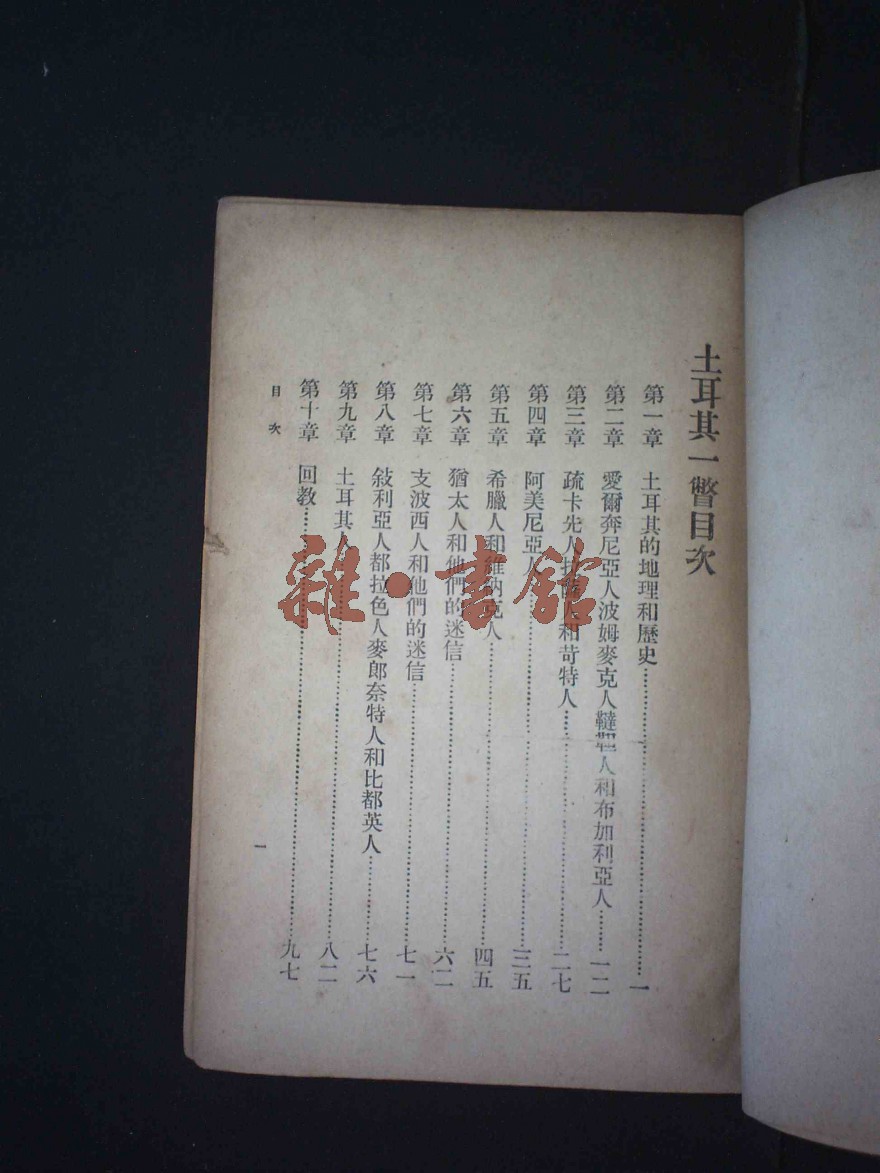 土耳其一瞥目次
第一章 土耳其的地理和歷史……一
第二章 愛爾奔尼亞人波姆麥克人韃靼人和布加利亞人……一二
第三章 疏卡先人 人和苛特人……二七
第四章 阿美尼亞人……三五
第五章 希臘人和維納克人……四五
第六章 猶太人和他們的迷信……六二
第七章 支波西人和他們的迷信……七一
第八章 敍利亞人都拉色人麥郎奈特人和比都英人……七六
第九章 土耳其人……八二
第十章 回教……九七
目次
一
雜·書館